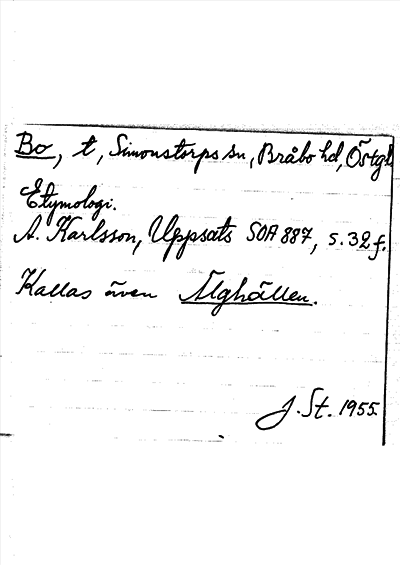 Bo, t, Simonstorps sn, Bråbo hd, Östgl
Etymologi.
A. Karlsson, Uppsats SOA 887, s. 32 f.
Kallas även Älghällen.
J. St. 1955.